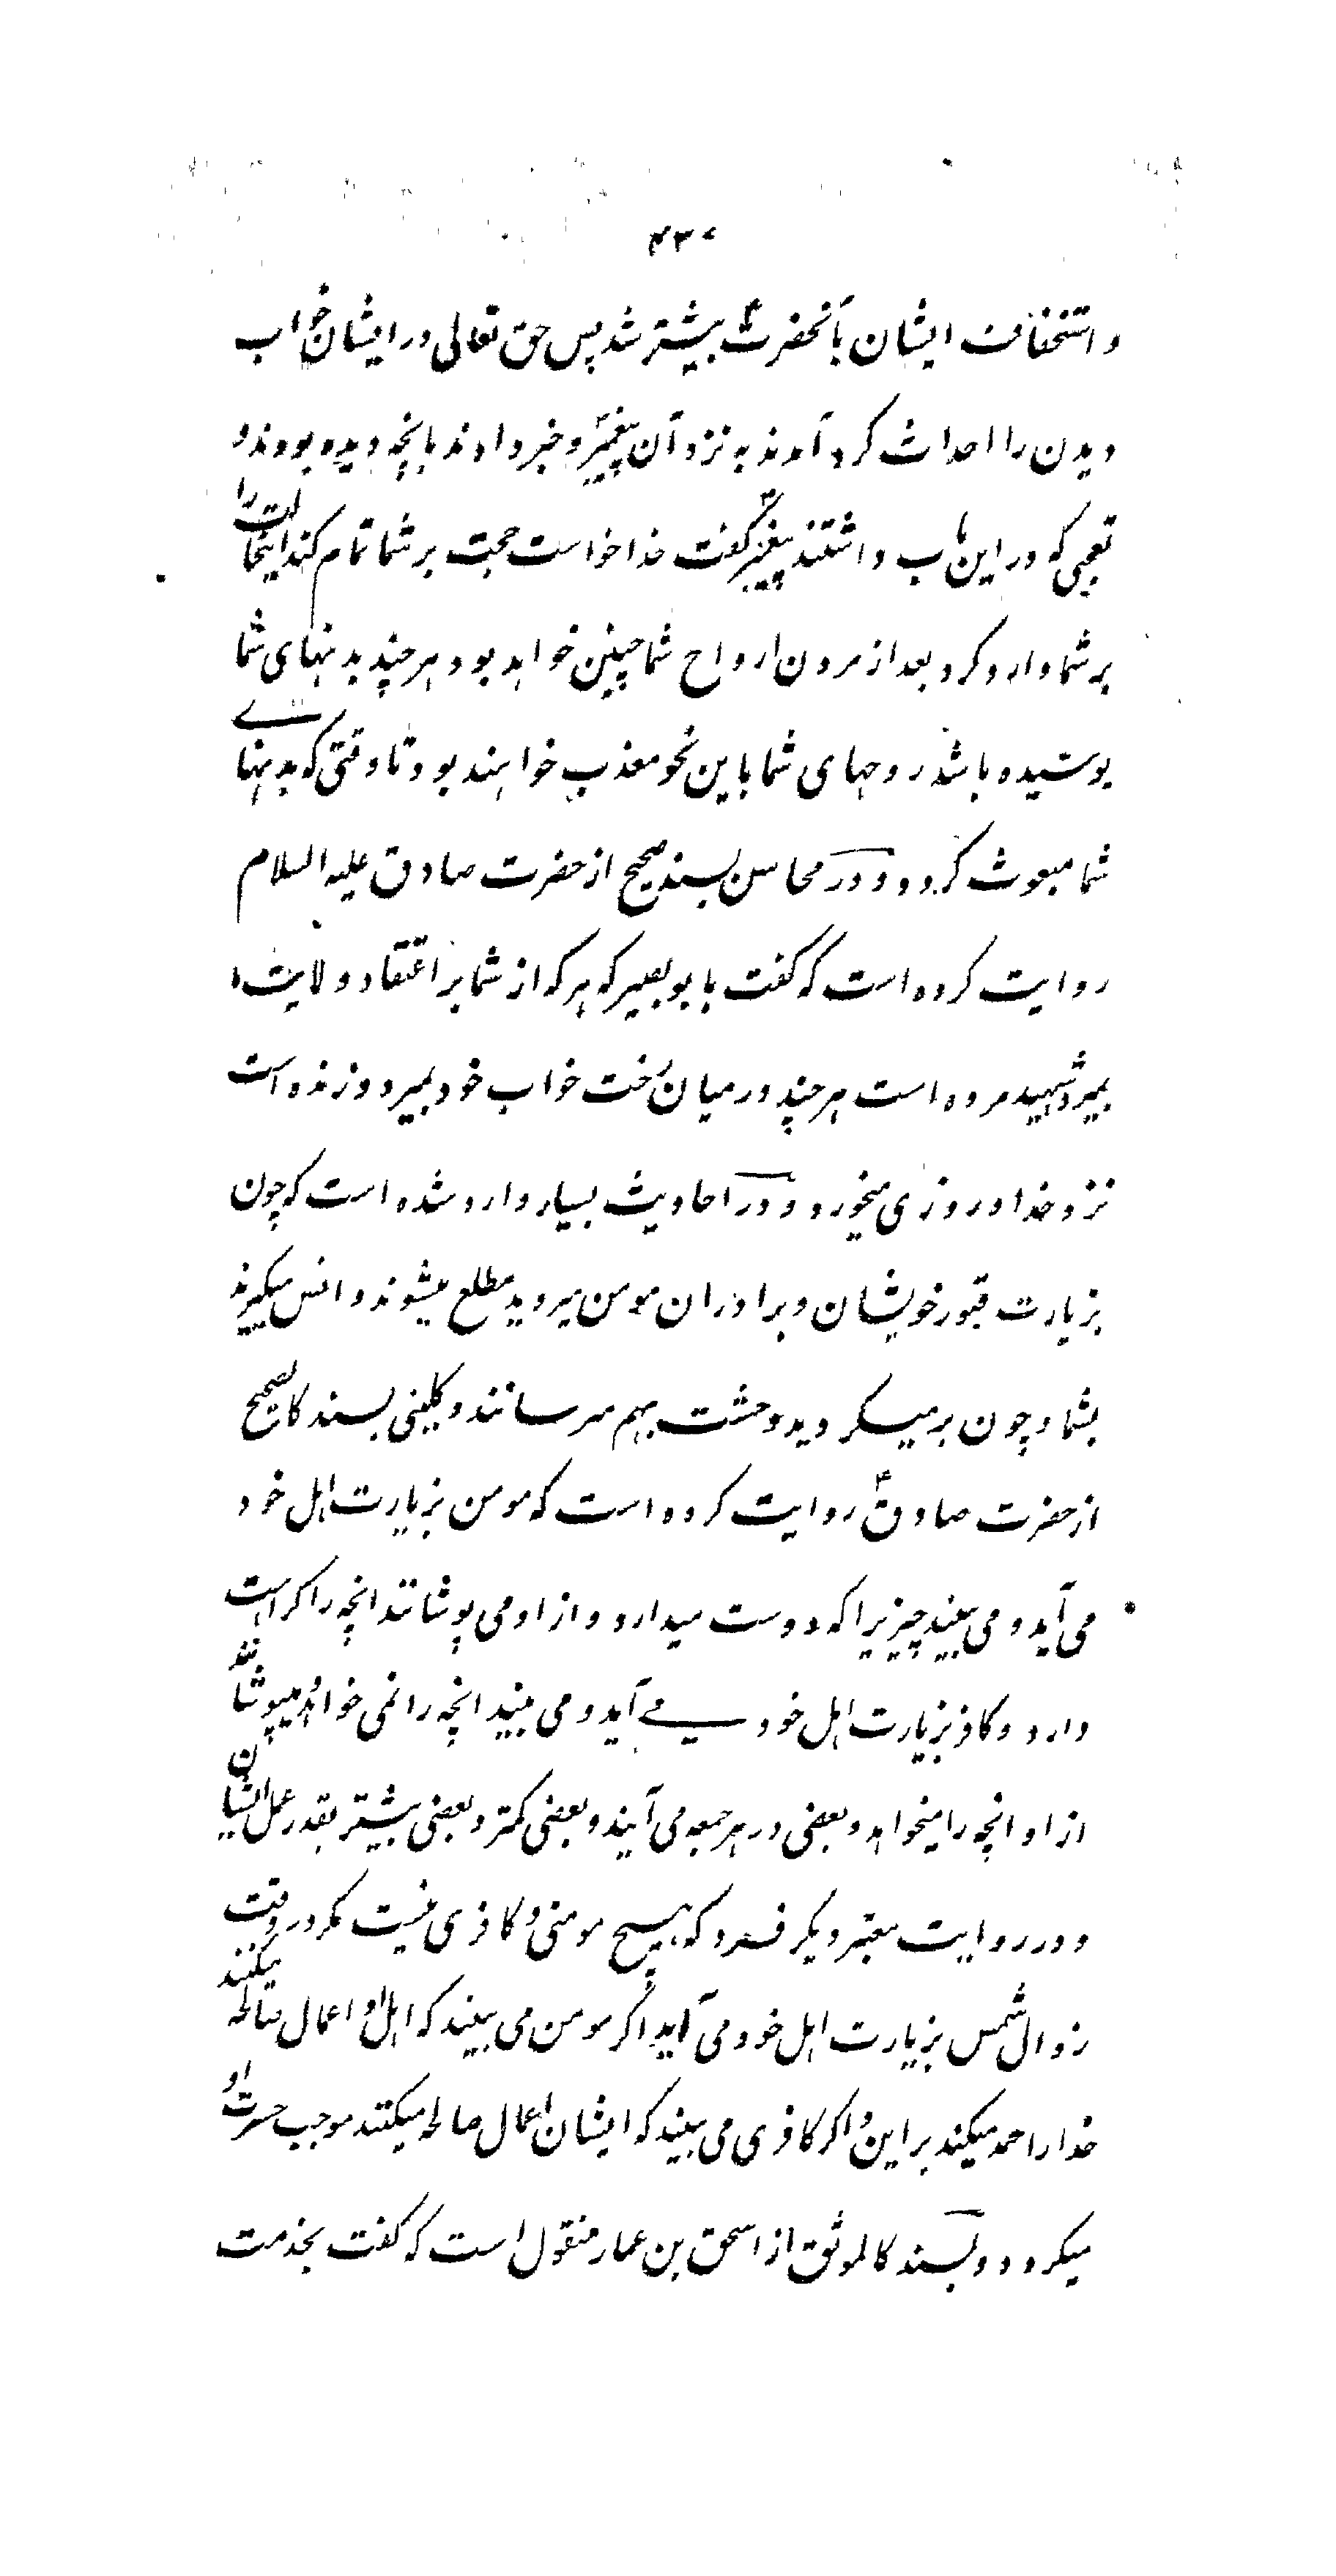 ۴۳۰
و استخفاف ایشان بآنحضرتؑ بیشتر شد پس حق تعالی در ایشان خواب
دیدن را احداث کرد آمدند به نزد آن پیغمبرؑ و خبر دادند بانچه دیده بودند و
تعجبی که در این باب داشتند پیغمبرؑ گفت خدا خواست حجت بر شما تمام کند اینحالت را
بر شما وارد کرد بعد از مردن ارواح شما چنین خواهد بود هر چند بدنهای شما
پوسیده باشد روحهای شما باین نحو معذب خواهند بود تا وقتی که بدنهای
شما مبعوث گردد و در محاسن بسند صحیح از حضرت صادق علیه السلام
روایت کرده است که گفت بابوبصیر که هر که از شما بر اعتقاد ولایت ما
بمیرد شهید مرده است هر چند در میان رخت خواب خود بمیرد و زنده است
نزد خدا و روزی میخورد و در احادیث بسیار وارد شده است که چون
بزیارت قبور خویشان و برادران مومن میروید مطلع میشوند و انس میگیرند
بشما و چون برمیگردید وحشت بهم میرسانند و کلینی بسند کالصحیح
از حضرت صادقؑ روایت کرده است که مومن بزیارت اهل خود
می آید و می بیند چیزیرا که دوست میدارد و از او می پوشانند انچه را کراهت
دارد و کافر بزیارت اهل خود می آید و می بیند انچه را نمی خواهد و میپوشانند
از او انچه را میخواهد و بعضی در هر جمعه می آیند و بعضی کمتر و بعضی بیشتر بقدر عمل ایشان
و در روایت معتبر دیگر فرمود که هیچ مومنی و کافری نیست مگر در وقت
زوال شمس بزیارت اهل خود می آید اگر مومن می بیند که اهل او اعمال صالحه میکنند
خدا را حمد میکند بر این و اگر کافری می بیند که ایشان اعمال صالحه میکنند موجب حسرت او
میگردد و بسند کالموثق از اسحق بن عمار منقول است که گفت بخدمت